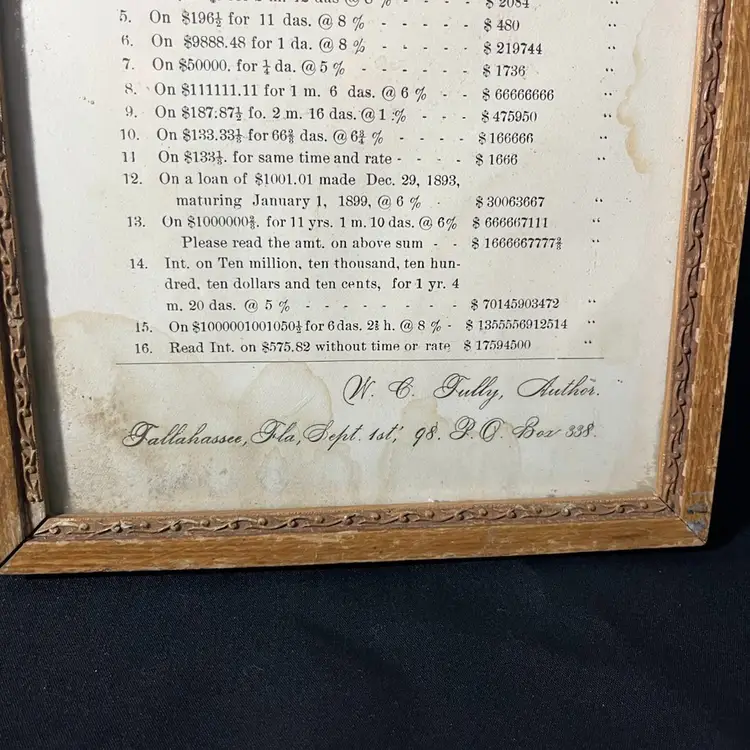 $ 2084 "
5. On $196½ for 11 das. @ 8 % - - - - - $ 480 "
6. On $9888.48 for 1 da. @ 8 % - - - - - $ 219744 "
7. On $50000. for ¼ da. @ 5 % - - - - - $ 1736 "
8. On $111111.11 for 1 m. 6 das. @ 6 % - - $ 66666666 "
9. On $187.87½ fo. 2 m. 16 das. @ 1 % - - - - $ 475950 "
10. On $133.33⅓ for 66⅔ das. @ 6¾ % - - - - $ 166666 "
11 On $133⅓. for same time and rate - - - - $ 1666 "
12. On a loan of $1001.01 made Dec. 29, 1893,
maturing January 1, 1899, @ 6 % - - - $ 30063667 "
13. On $1000000⅔. for 11 yrs. 1 m. 10 das. @ 6% $ 666667111 "
Please read the amt. on above sum - - $ 1666667777⅔ "
14. Int. on Ten million, ten thousand, ten hun-
dred, ten dollars and ten cents, for 1 yr. 4
m. 20 das. @ 5 % - - - - - - - - $ 70145903472 "
15. On $1000001001050½ for 6 das. 2⅔ h. @ 8 % - $ 1355556912514 "
16. Read Int. on $575.82 without time or rate $ 17594500 "
W. C. Tully, Author.
Tallahassee, Fla, Sept. 1st, 98. P. O. Box 338.